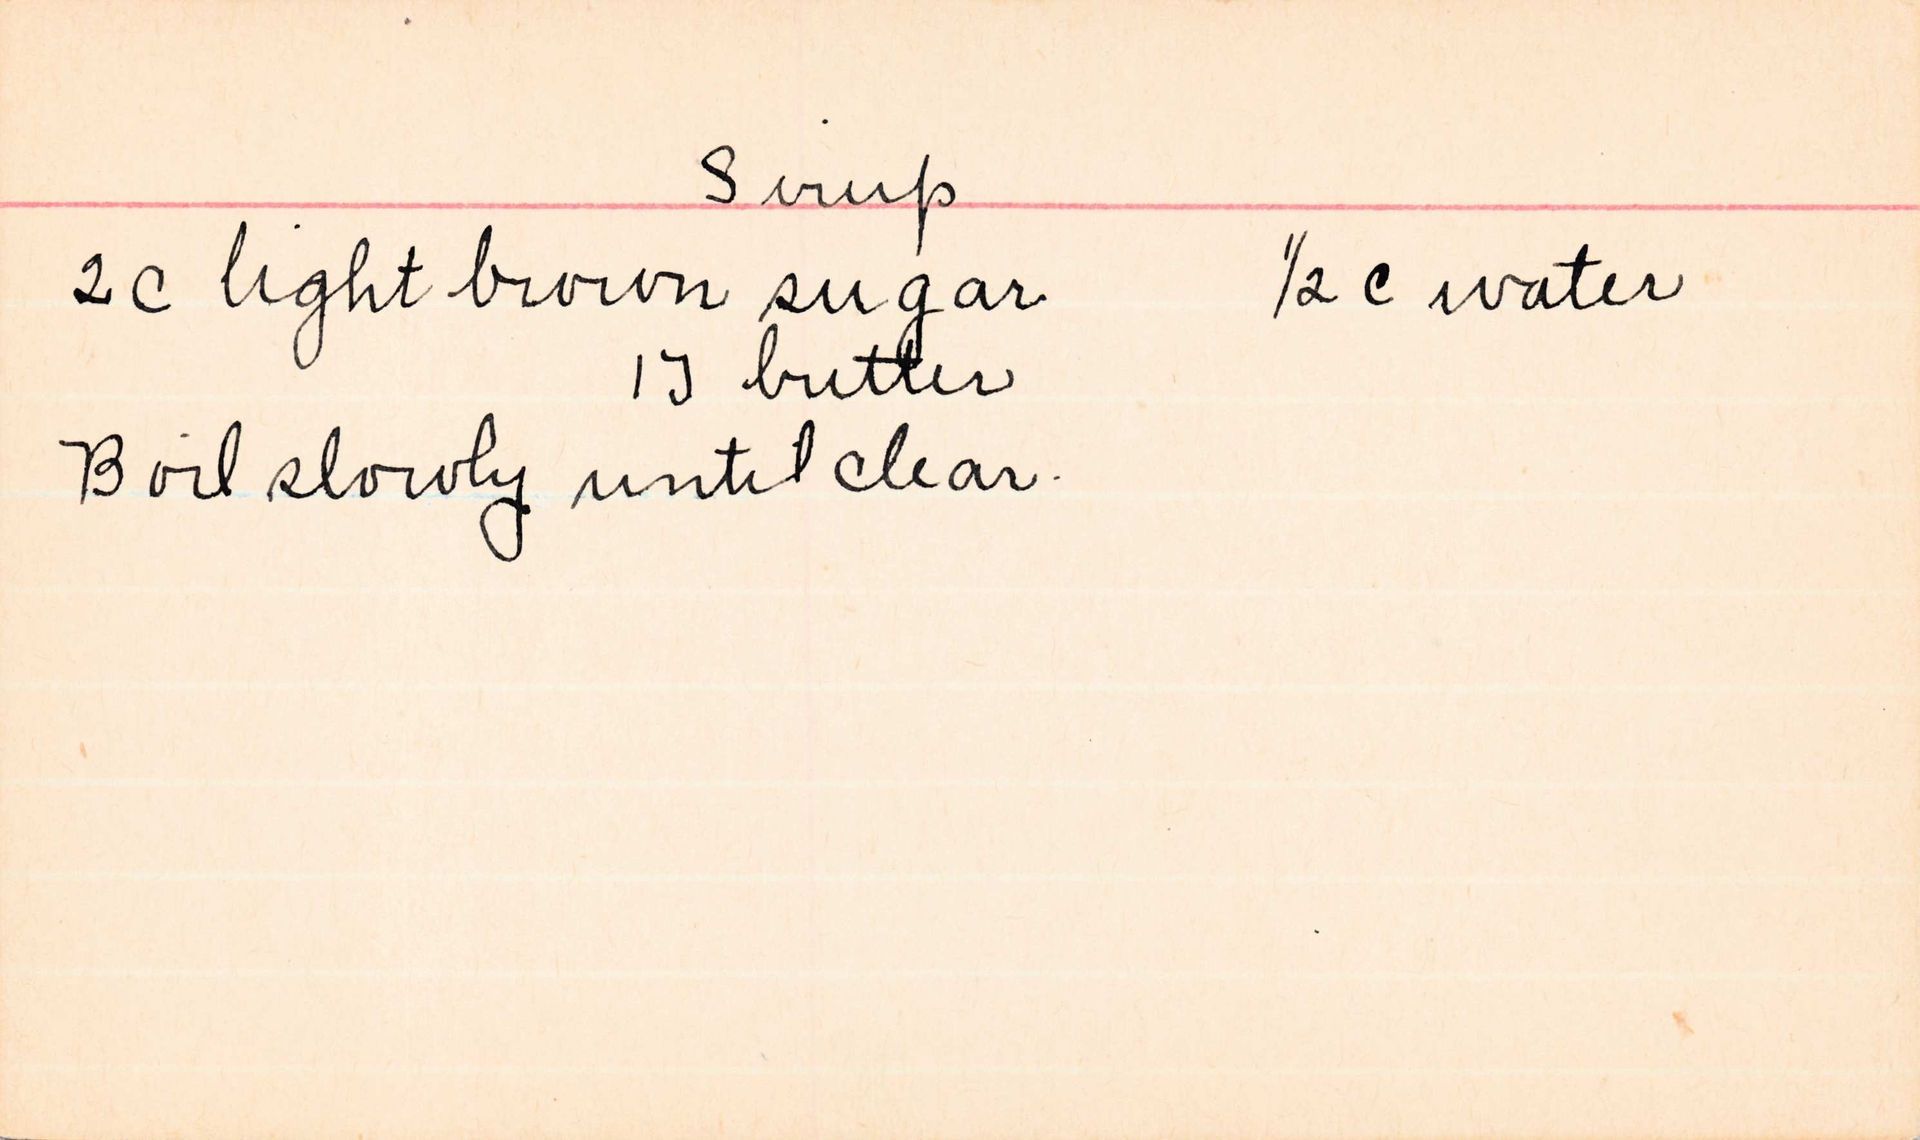 Sirup
2 c light brown sugar 1/2 c water
1 T butter
Boil slowly until clear.